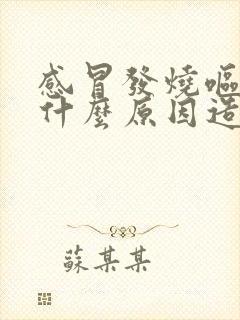 感冒發燒嘔
什麼原因造
蘇某某